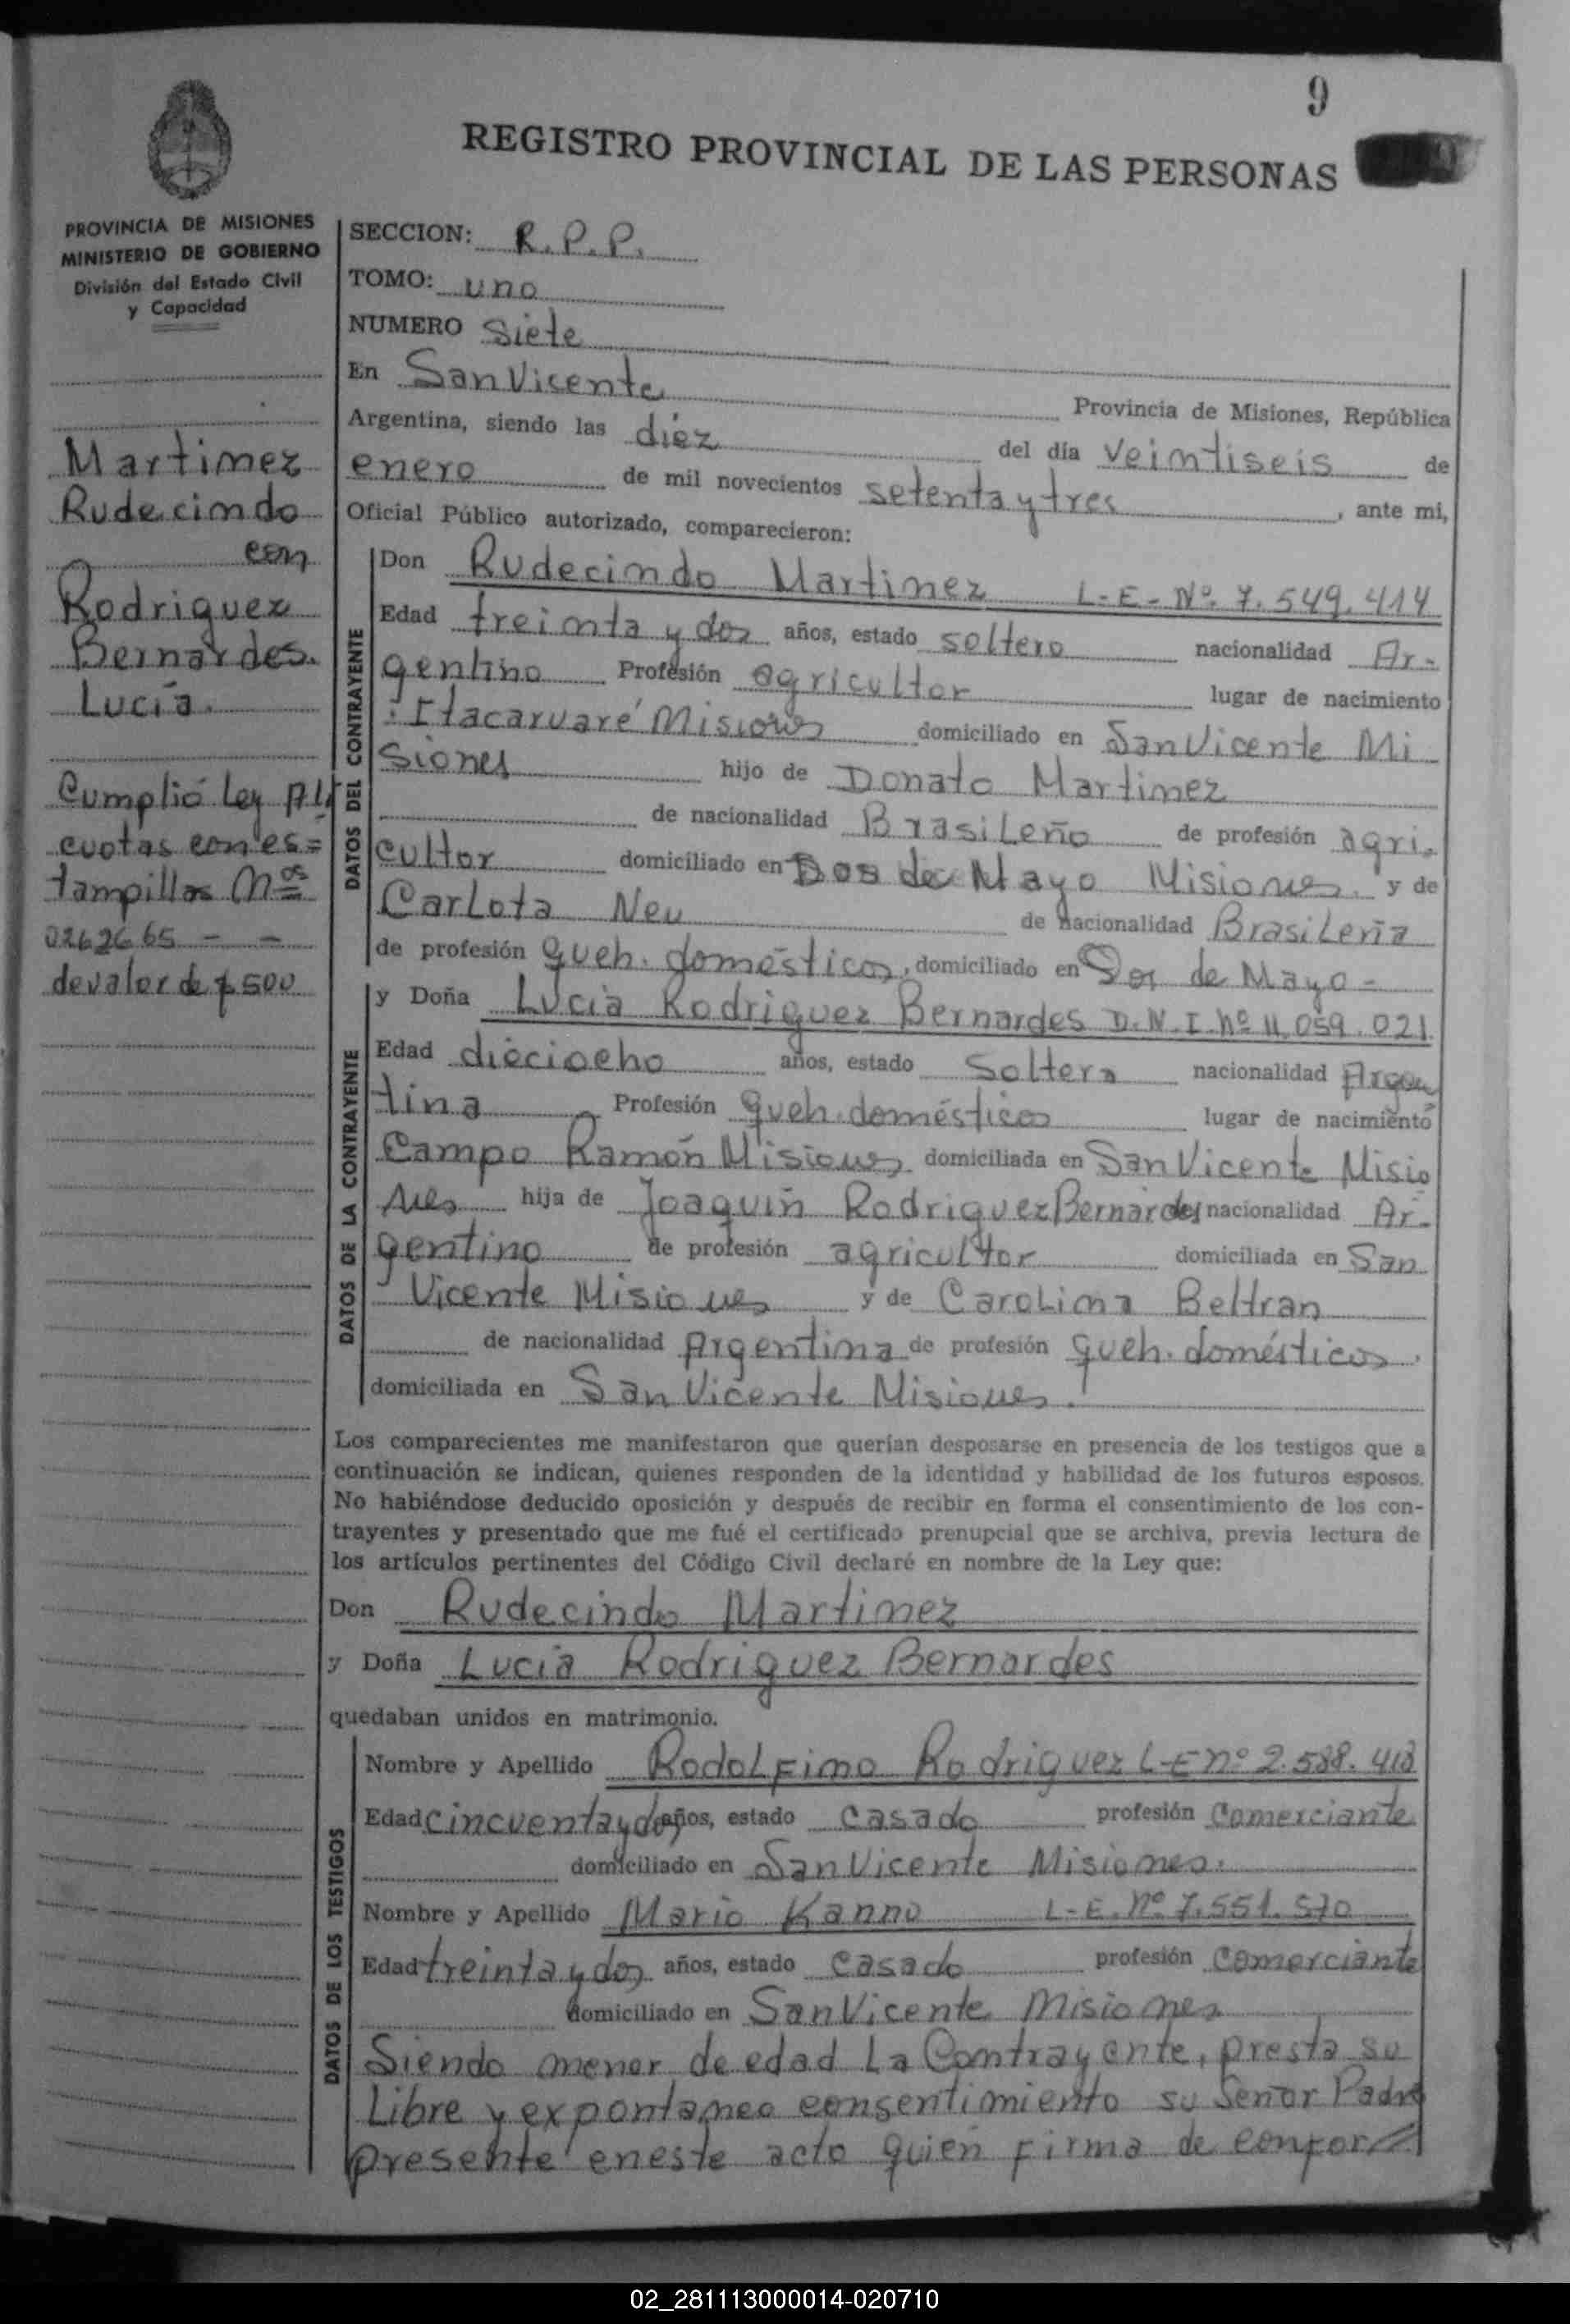 9
REGISTRO PROVINCIAL DE LAS PERSONAS
PROVINCIA DE MISIONES
MINISTERIO DE GOBIERNO
División del Estado Civil
y Capacidad
Martinez
Rudecindo
con
Rodriguez
Bernardes.
Lucía.
Cumplió Ley Al
cuotas con es=
tampillas Nos
0262665 - -
de valor de $ 500
SECCION: R.P.P.
TOMO: uno
NUMERO Siete
En San Vicente Provincia de Misiones, República
Argentina, siendo las diez del día veintiseis de
enero de mil novecientos setenta y tres, ante mi,
Oficial Público autorizado, comparecieron:
DATOS DEL CONTRAYENTE
Don Rudecindo Martinez L-E-Nº. 7.549.414
Edad treinta y dos años, estado soltero nacionalidad Ar-
gentino Profesión agricultor lugar de nacimiento
: Itacaruaré Misiones domiciliado en San Vicente Mi
siones hijo de Donato Martinez
de nacionalidad Brasileño de profesión agri.
cultor domiciliado en Dos de Mayo Misiones. y de
Carlota Neu de nacionalidad Brasileña
de profesión queh. domésticos, domiciliado en Dos de Mayo -
DATOS DE LA CONTRAYENTE
y Doña Lucia Rodriguez Bernardes D.N.I. Nº 11.059.021
Edad dieciocho años, estado Soltera nacionalidad Argen
tina Profesión queh. domésticos lugar de nacimiento
Campo Ramón Misiones domiciliada en San Vicente Misio
nes hija de Joaquin Rodriguez Bernardes nacionalidad Ar-
gentino de profesión agricultor domiciliada en San
Vicente Misiones y de Carolina Beltran
de nacionalidad Argentina de profesión queh. domésticos.
domiciliada en San Vicente Misiones.
Los comparecientes me manifestaron que querían desposarse en presencia de los testigos que a
continuación se indican, quienes responden de la identidad y habilidad de los futuros esposos.
No habiéndose deducido oposición y después de recibir en forma el consentimiento de los con-
trayentes y presentado que me fué el certificado prenupcial que se archiva, previa lectura de
los artículos pertinentes del Código Civil declaré en nombre de la Ley que:
Don Rudecindo Martinez
y Doña Lucia Rodriguez Bernardes
quedaban unidos en matrimonio.
DATOS DE LOS TESTIGOS
Nombre y Apellido Rodolfino Rodriguez L-E nº 2.588.418
Edad cincuenta y dos años, estado casado profesión comerciante
domiciliado en San Vicente Misiones.
Nombre y Apellido Mario Kanno L-E. Nº 7.551.570
Edad treinta y dos años, estado casado profesión comerciante
domiciliado en San Vicente Misiones
Siendo menor de edad La Contrayente, presta su
Libre y expontaneo consentimiento su Señor Padre
presente en este acto quien firma de confor
02_281113000014-020710